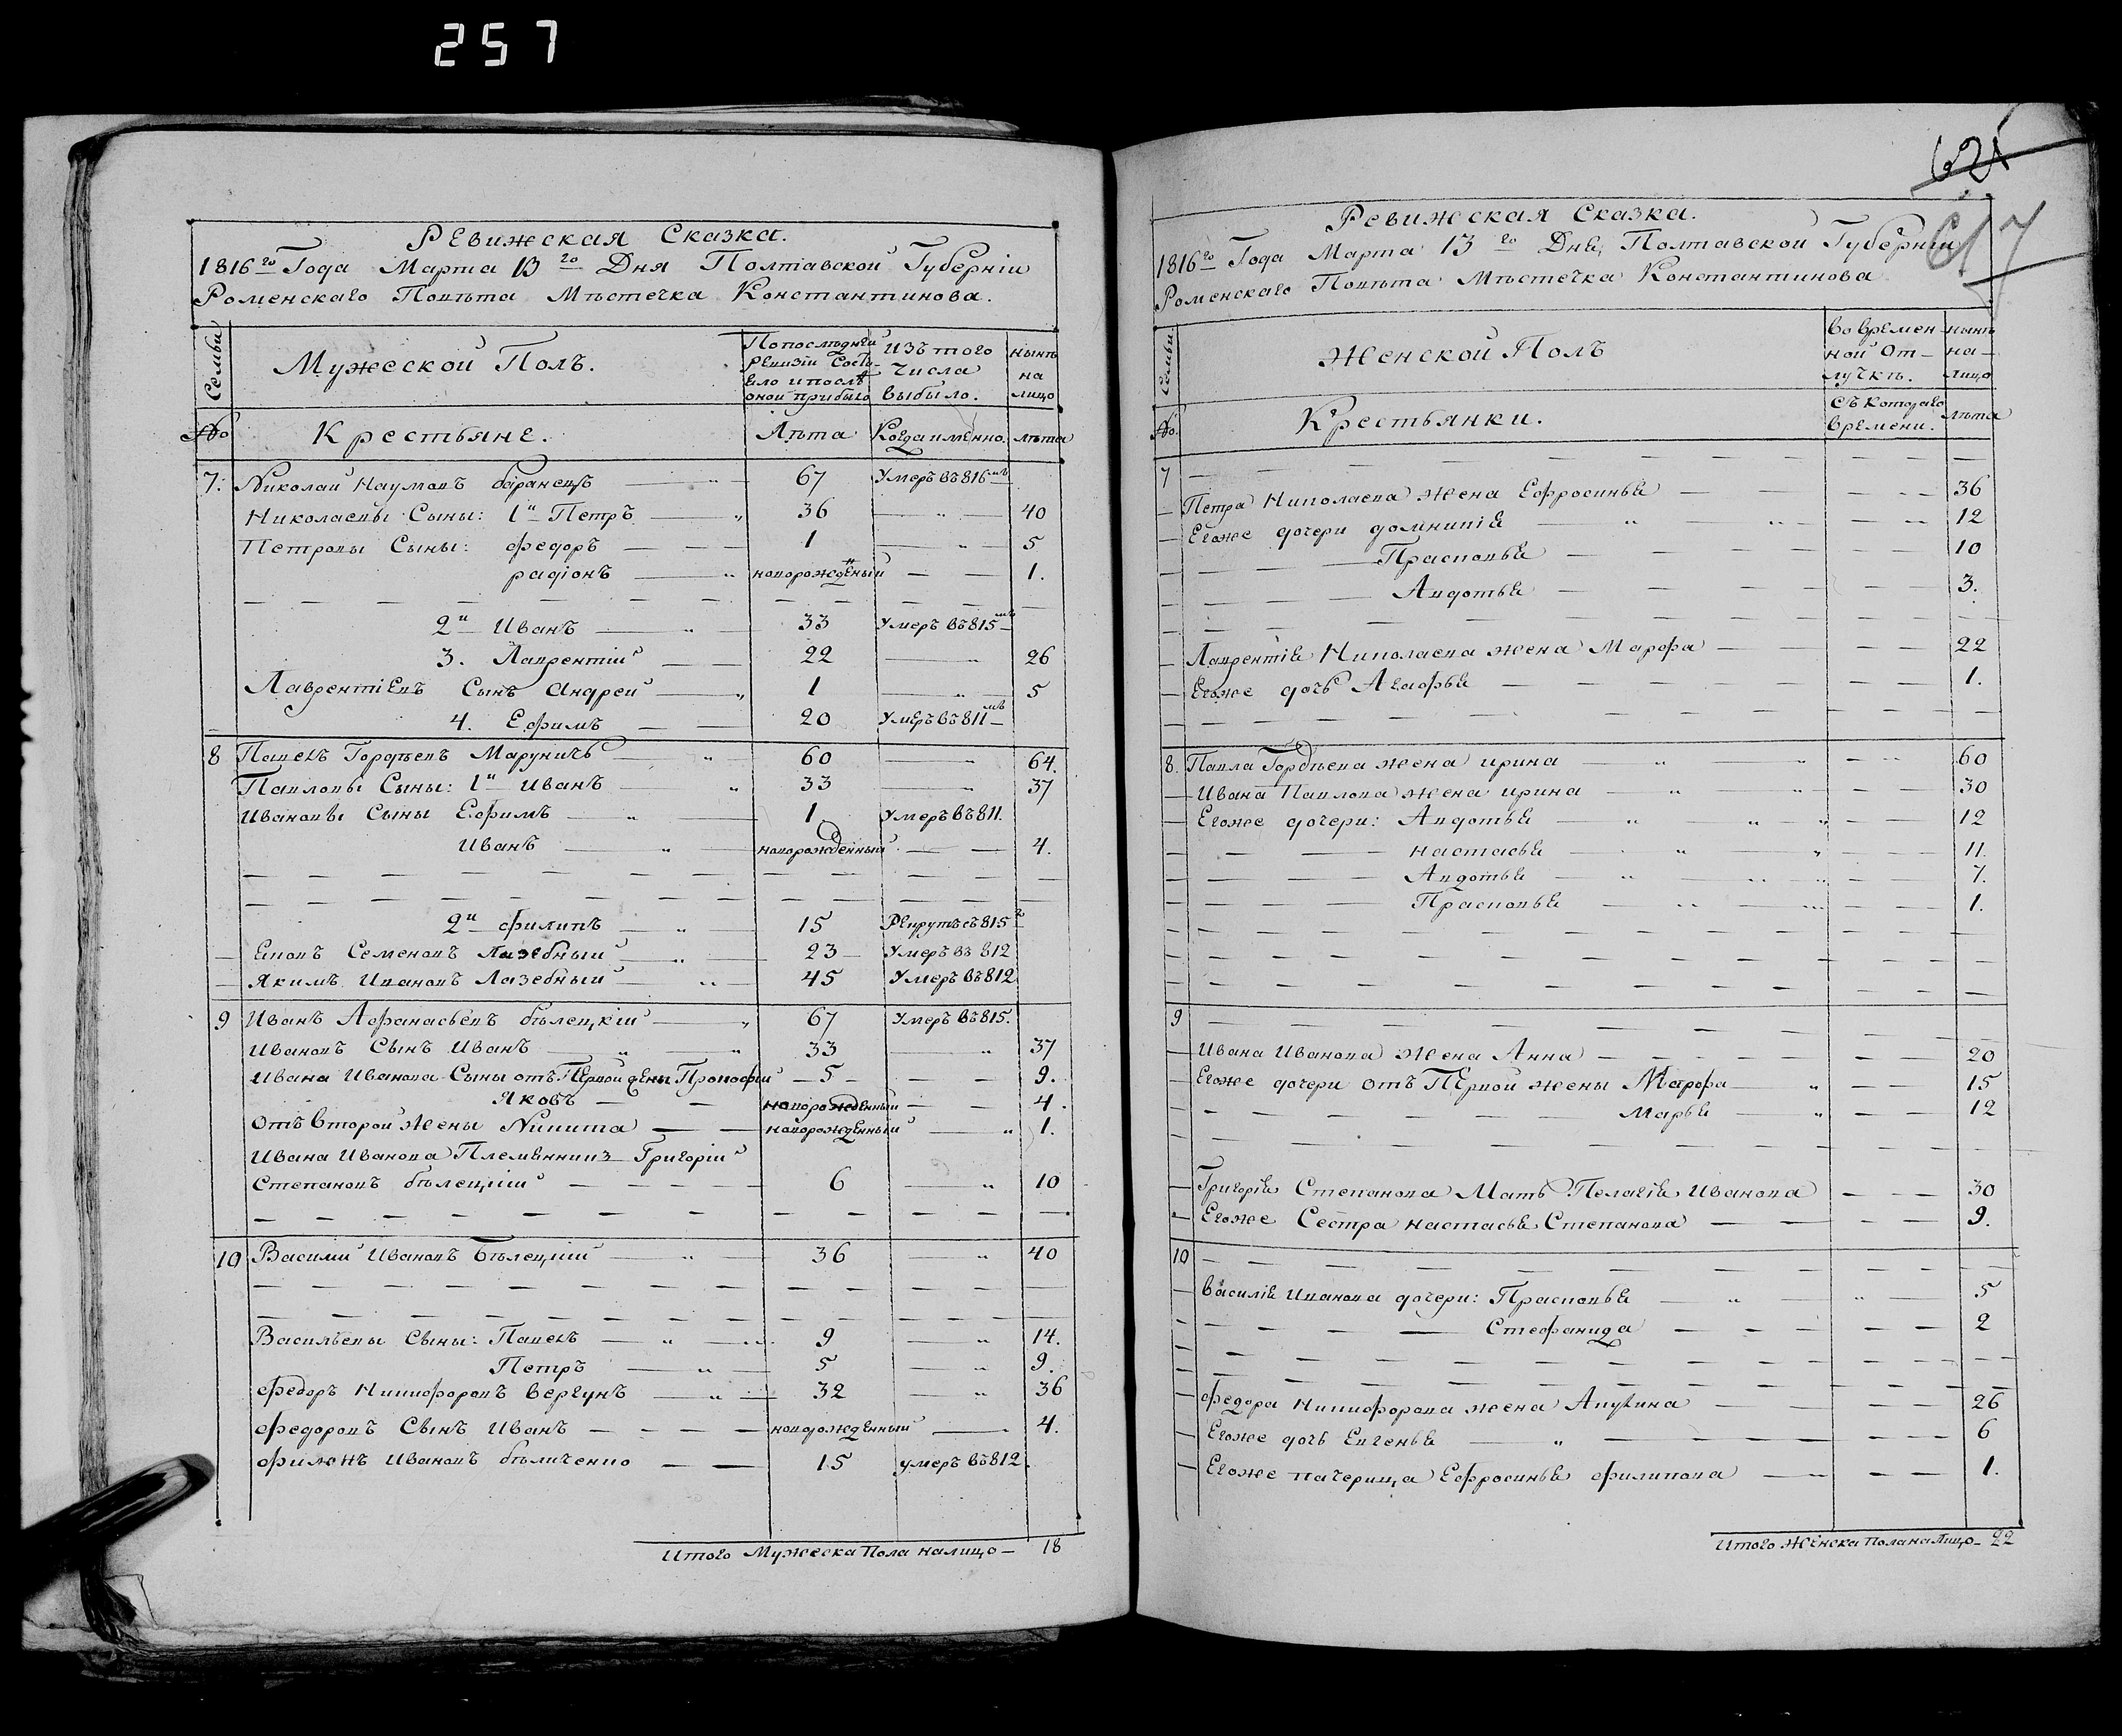 257
Ревижская Сказка.
1816го Года Марта 13го Дня Полтавской Губерніи
Роменскаго Повѣта Мѣстечка Константинова.
Семьи
Мужеской Полъ.
По последней ревизіи состояло и послѣ оной прибыло
Изъ того числа выбыло.
нынѣ на лицо
№
Крестьяне.
Лѣта
Когда именно.
лѣта
7. Николай Наумовъ баранецъ 67 Умеръ въ 816мъ
Николаевы Сыны: 1й Петръ 36 40
Петровы Сыны: федоръ 1 5
радіонъ новорожденый 1.
2й Иванъ 33 Умеръ въ 815мъ
3. Лаврентій 22 26
Лаврентіевъ Сынъ Андрей 1 5
4. Ефимъ 20 Умеръ въ 811мъ
8 Павелъ Гордѣевъ Маруничъ 60 64.
Павловы Сыны: 1й Иванъ 33 37
Ивановы Сыны Ефимъ 1. Умеръ въ 811.
Иванъ новорожденный 4.
2й филипъ 15 Рекрутъ съ 815го
Семеновъ Лазебный 23 Умеръ въ 812
Якимъ Ивановъ Лазебный 45 Умеръ въ 812
9 Иванъ Афанасьевъ бѣлецкій 67 Умеръ въ 815.
Ивановъ Сынъ Иванъ 33 37
Ивана Иванова Сыны отъ Первой жены Прокофій 5 9.
Яковъ новорожденный 4.
Отъ второй жены Никита новорожденный 1.
Ивана Иванова Племянник Григорій
Степановъ бѣлецкій 6 10
10 Василий Ивановъ Бѣлецкій 36 40
Васильевы Сыны: Павелъ 9 14.
Петръ 5 9.
федоръ Никифоровъ вергунъ 32 36
федоровъ Сынъ Иванъ новорожденный 4.
филонъ Ивановъ бѣличенко 15 умеръ въ 812.
Итого Мужеска Пола налицо 18
617
Ревижская Сказка.
1816го Года Марта 13го Дня, Полтавской Губерніи
Роменскаго Повѣта Мѣстечка Константинова
Семьи.
Женской Полъ
Во временной отлучкѣ.
нынѣ на лицо
№.
Крестьянки.
Съ котораго времени.
лѣта
7
Петра Николаева жена Ефросинья 36
Егоже дочери домникія 12
Прасковья 10
Авдотья 3.
Лаврентія Николаева жена Марфа 22
Егоже дочь Агафья 1.
8. Павла Гордѣева жена ирина 60
Ивана Павлова жена ирина 30
Егоже дочери: Авдотья 12
настасья 11.
Авдотья 7.
Прасковья 1.
9
Ивана Иванова жена Анна 20
Егоже дочери отъ Первой жены Марфа 15
Марья 12
Григорія Степанова Мать Пелагія Иванова 30
Егоже Сестра настасья Степанова 9.
10
василія Иванова дочери: Прасковья 5
Стефанида 2
федора Никифорова жена Акулина 26
Егоже дочь Евгенья 6
Егоже пачерица Ефросинья филипова 1.
Итого Женска Пола на Лицо 22